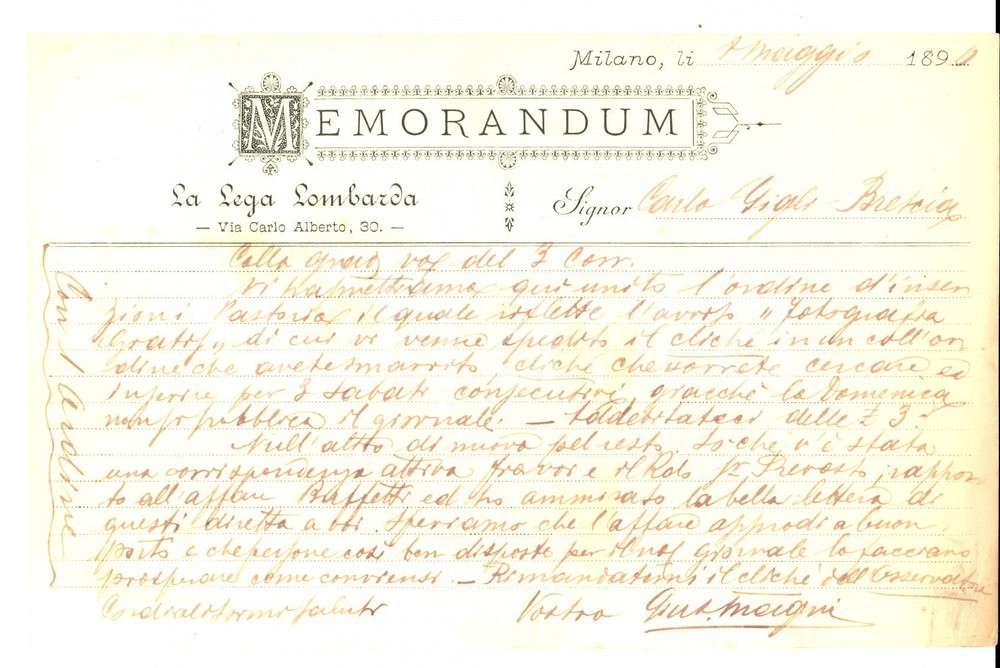 Milano, li 8 Maggio 1890
MEMORANDUM
La Lega Lombarda
— Via Carlo Alberto, 30. —
Signor Carlo Gigli Brescia
Colla grad. vos. del 3 Corr.
Vi rimettiamo qui unito l'ordine d'inser
zioni Pastoria il quale riflette l'avviso "Fotografia
Gratis" di cui vi venne spedito il cliché in un coll'or
dine che avete smarrito, cliché che vorrete cercare ed
inserire per 3 sabati consecutivi, giacché la Domenica
non si pubblica il giornale. — Addebitateci delle £ 3.
Null'altro di nuovo pel resto. So che v'è stata
una corrispondenza attiva fra voi e il Rdo Sr. Prevosto, rappor
to all'affare Buffetti ed ho ammirato la bella lettera di
questi diretta a voi. Speriamo che l'affare approdi a buon
porto e che persone così ben disposte per il nos. giornale lo facciano
prosperare come conviensi. — Rimandatemi il cliché dell'Osservatore
Cordialissimi saluti
Vostro Gius. Magni
Con 1 ordine